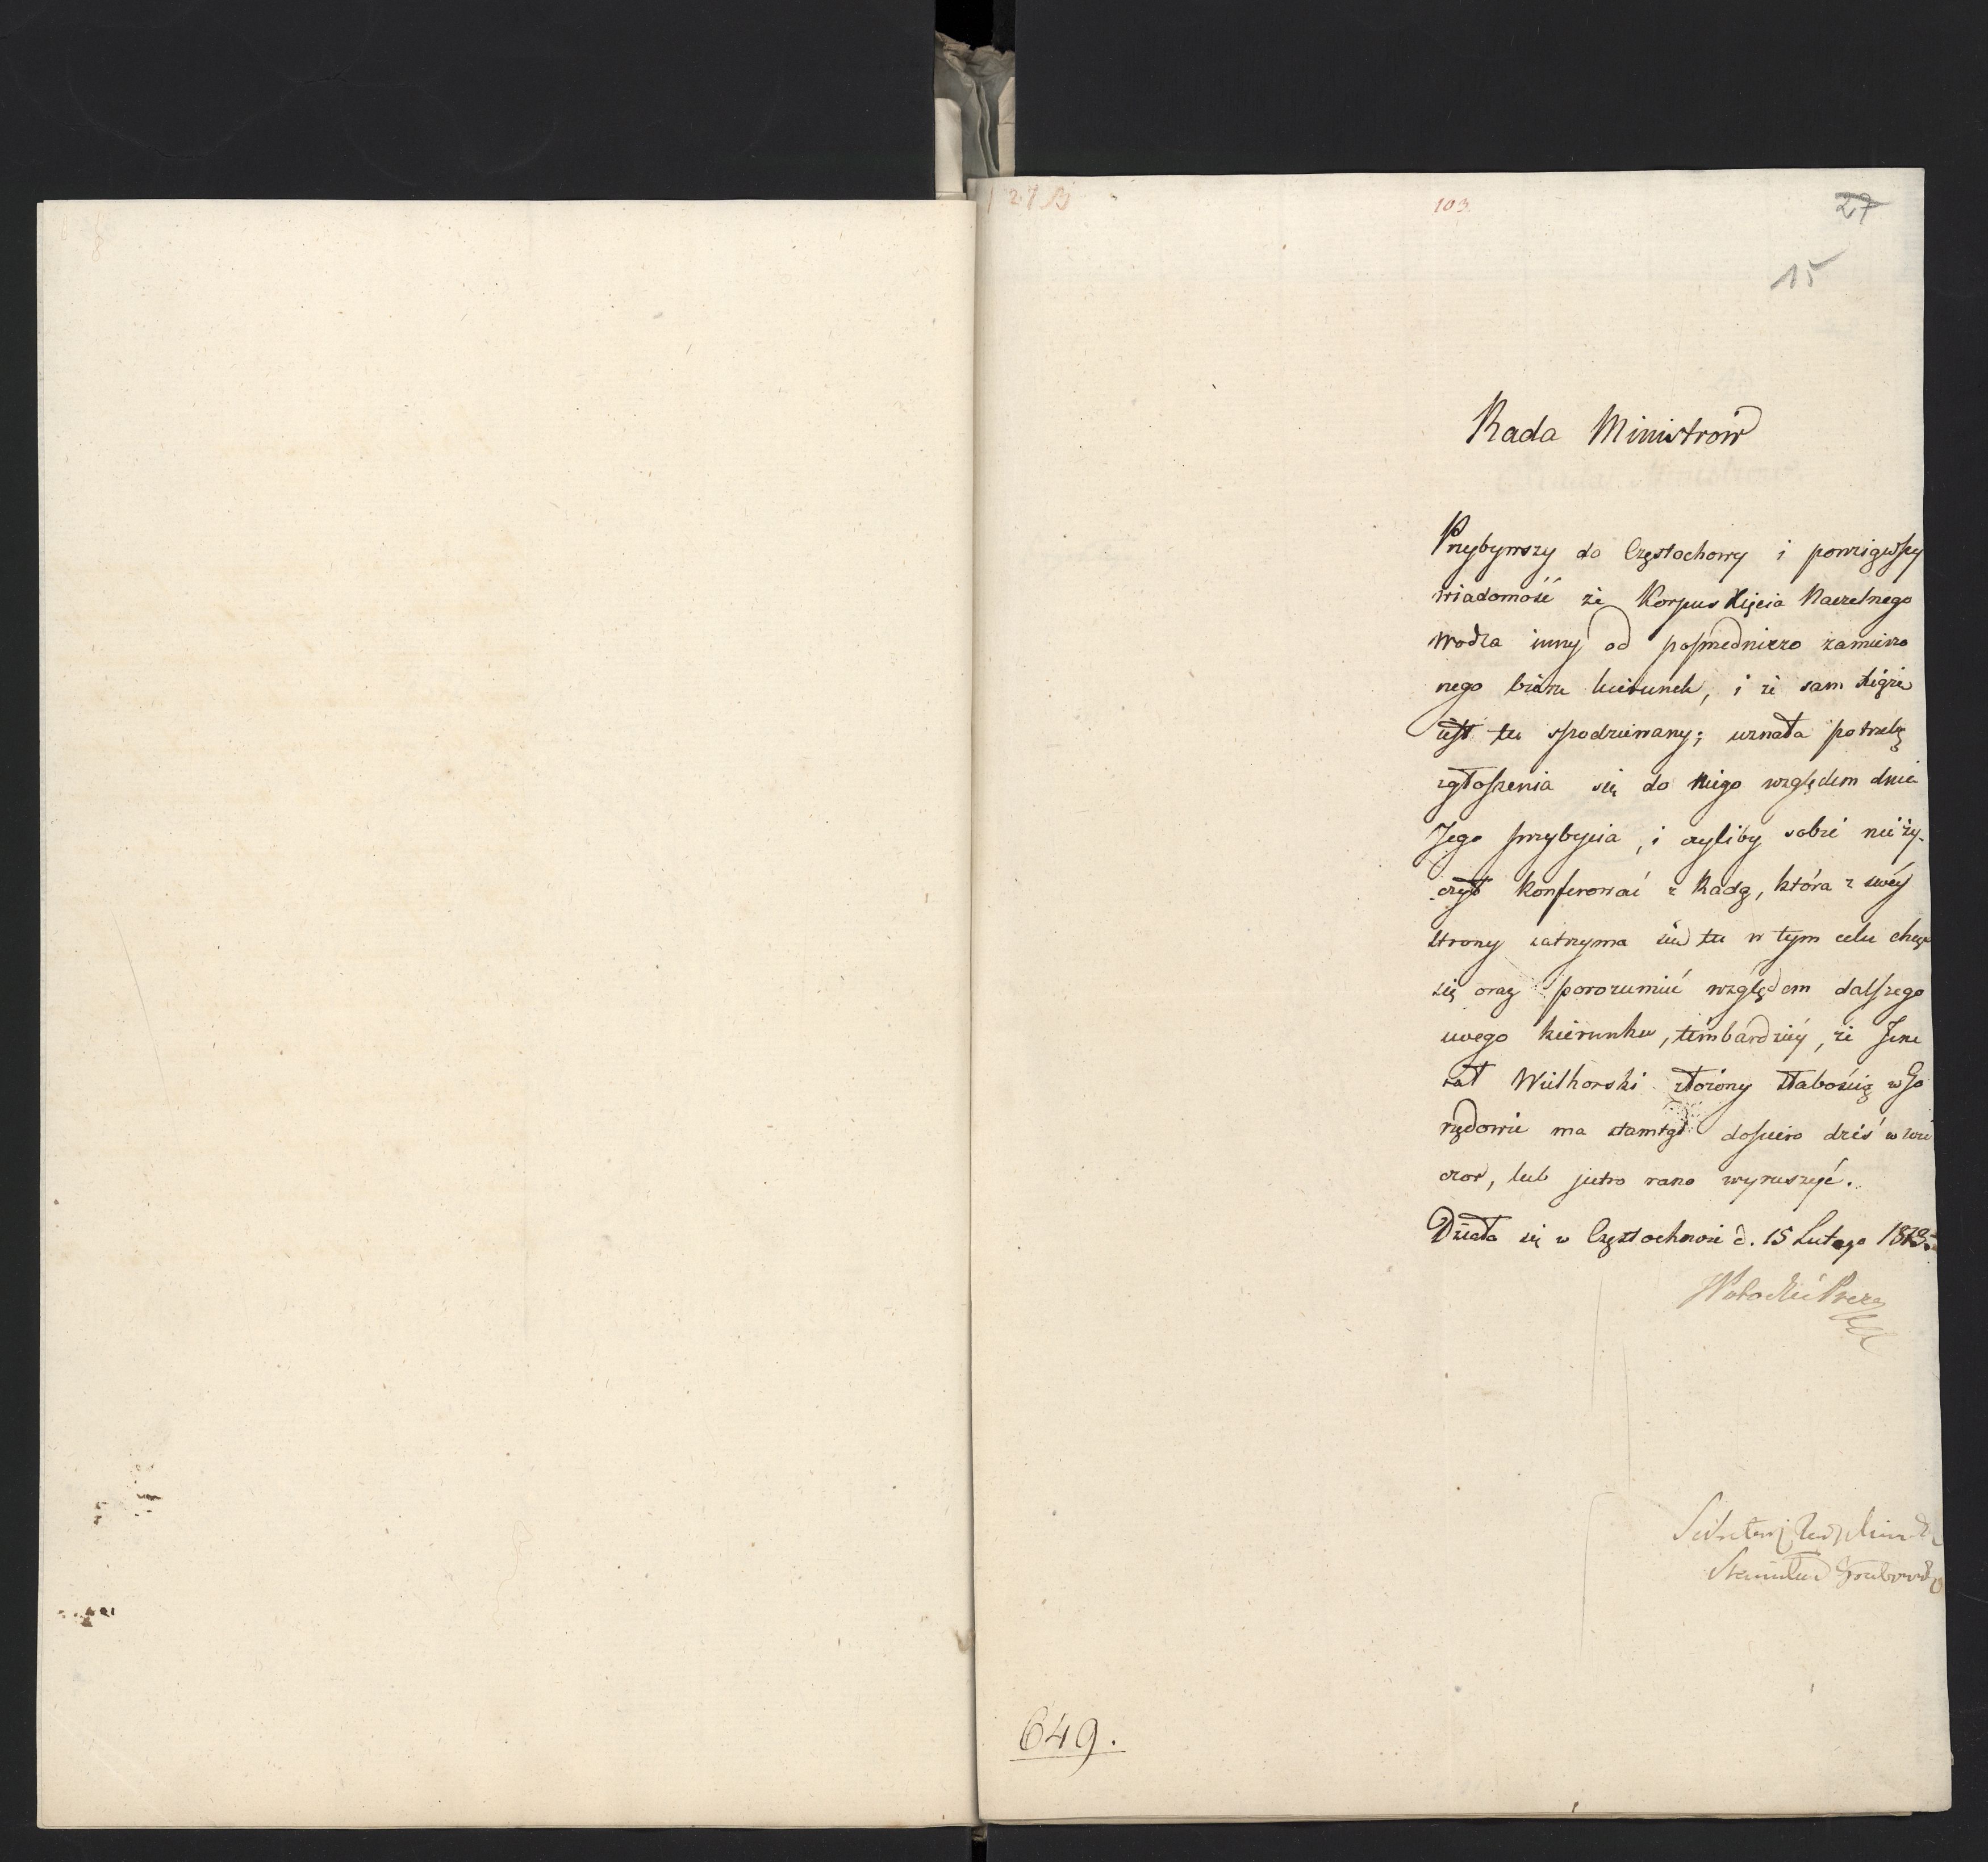 103.
27
15
Rada Ministrow
Przybywszy do Częstochowy i powziąwszy
wiadomość że Korpus Xięcia Naczelnego
Wodza inny od pośredniczo zamierzo
nego bierze kierunek, i że sam Xiąże
iest tu spodziewany; uznała potrzebę
zgłoszenia się do Niego względem dnia
Jego przybycia, i czyliby sobie nie ży-
czył konferować z Radą, która z swéy
strony zatrzyma się tu w tym celu chcąc
się oraz porozumieć względem dalszego
swego kierunku, témbardziéy, że Jene
rał Wielhorski złożony słabością w Go
rzędowie ma stamtąd dopiero dziś w wie
czor, lub jutro rano wyruszyć.
Działo się w Częstochowie d. 15 Lutego 1813.
Potocki Prezes
Sekretarz Rady Ministrów
Stanisław Grabowski
649.